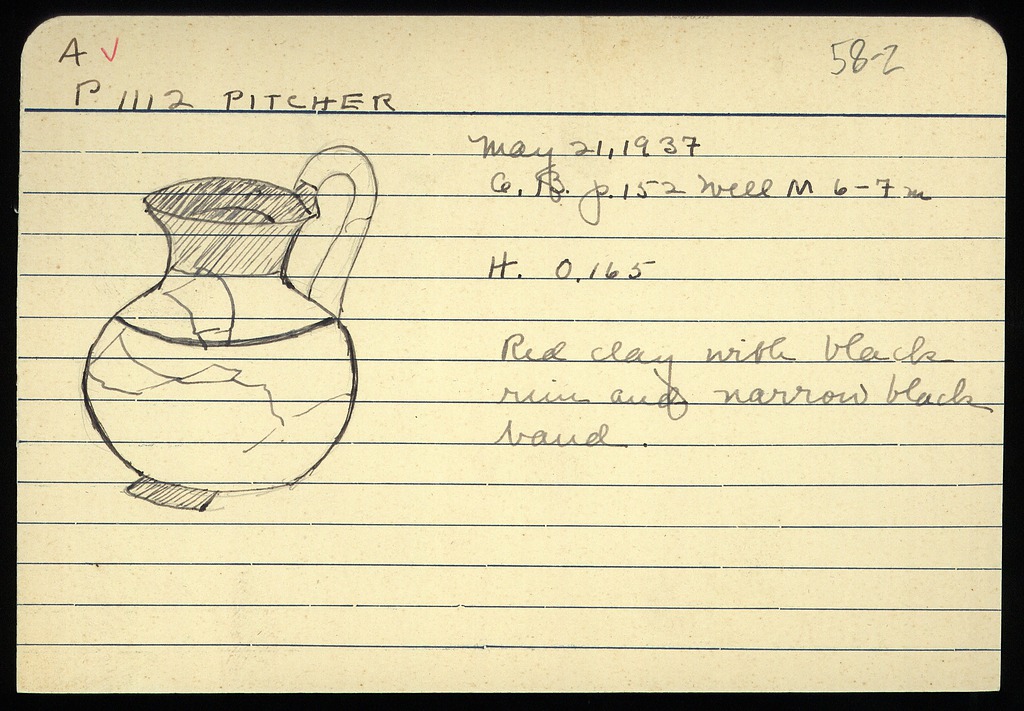 A ✓
58-2
P 1112 PITCHER
May 21, 1937
G. B. p. 152 Well M 6-7 m
H. 0.165
Red clay with black
rim and narrow black
band.